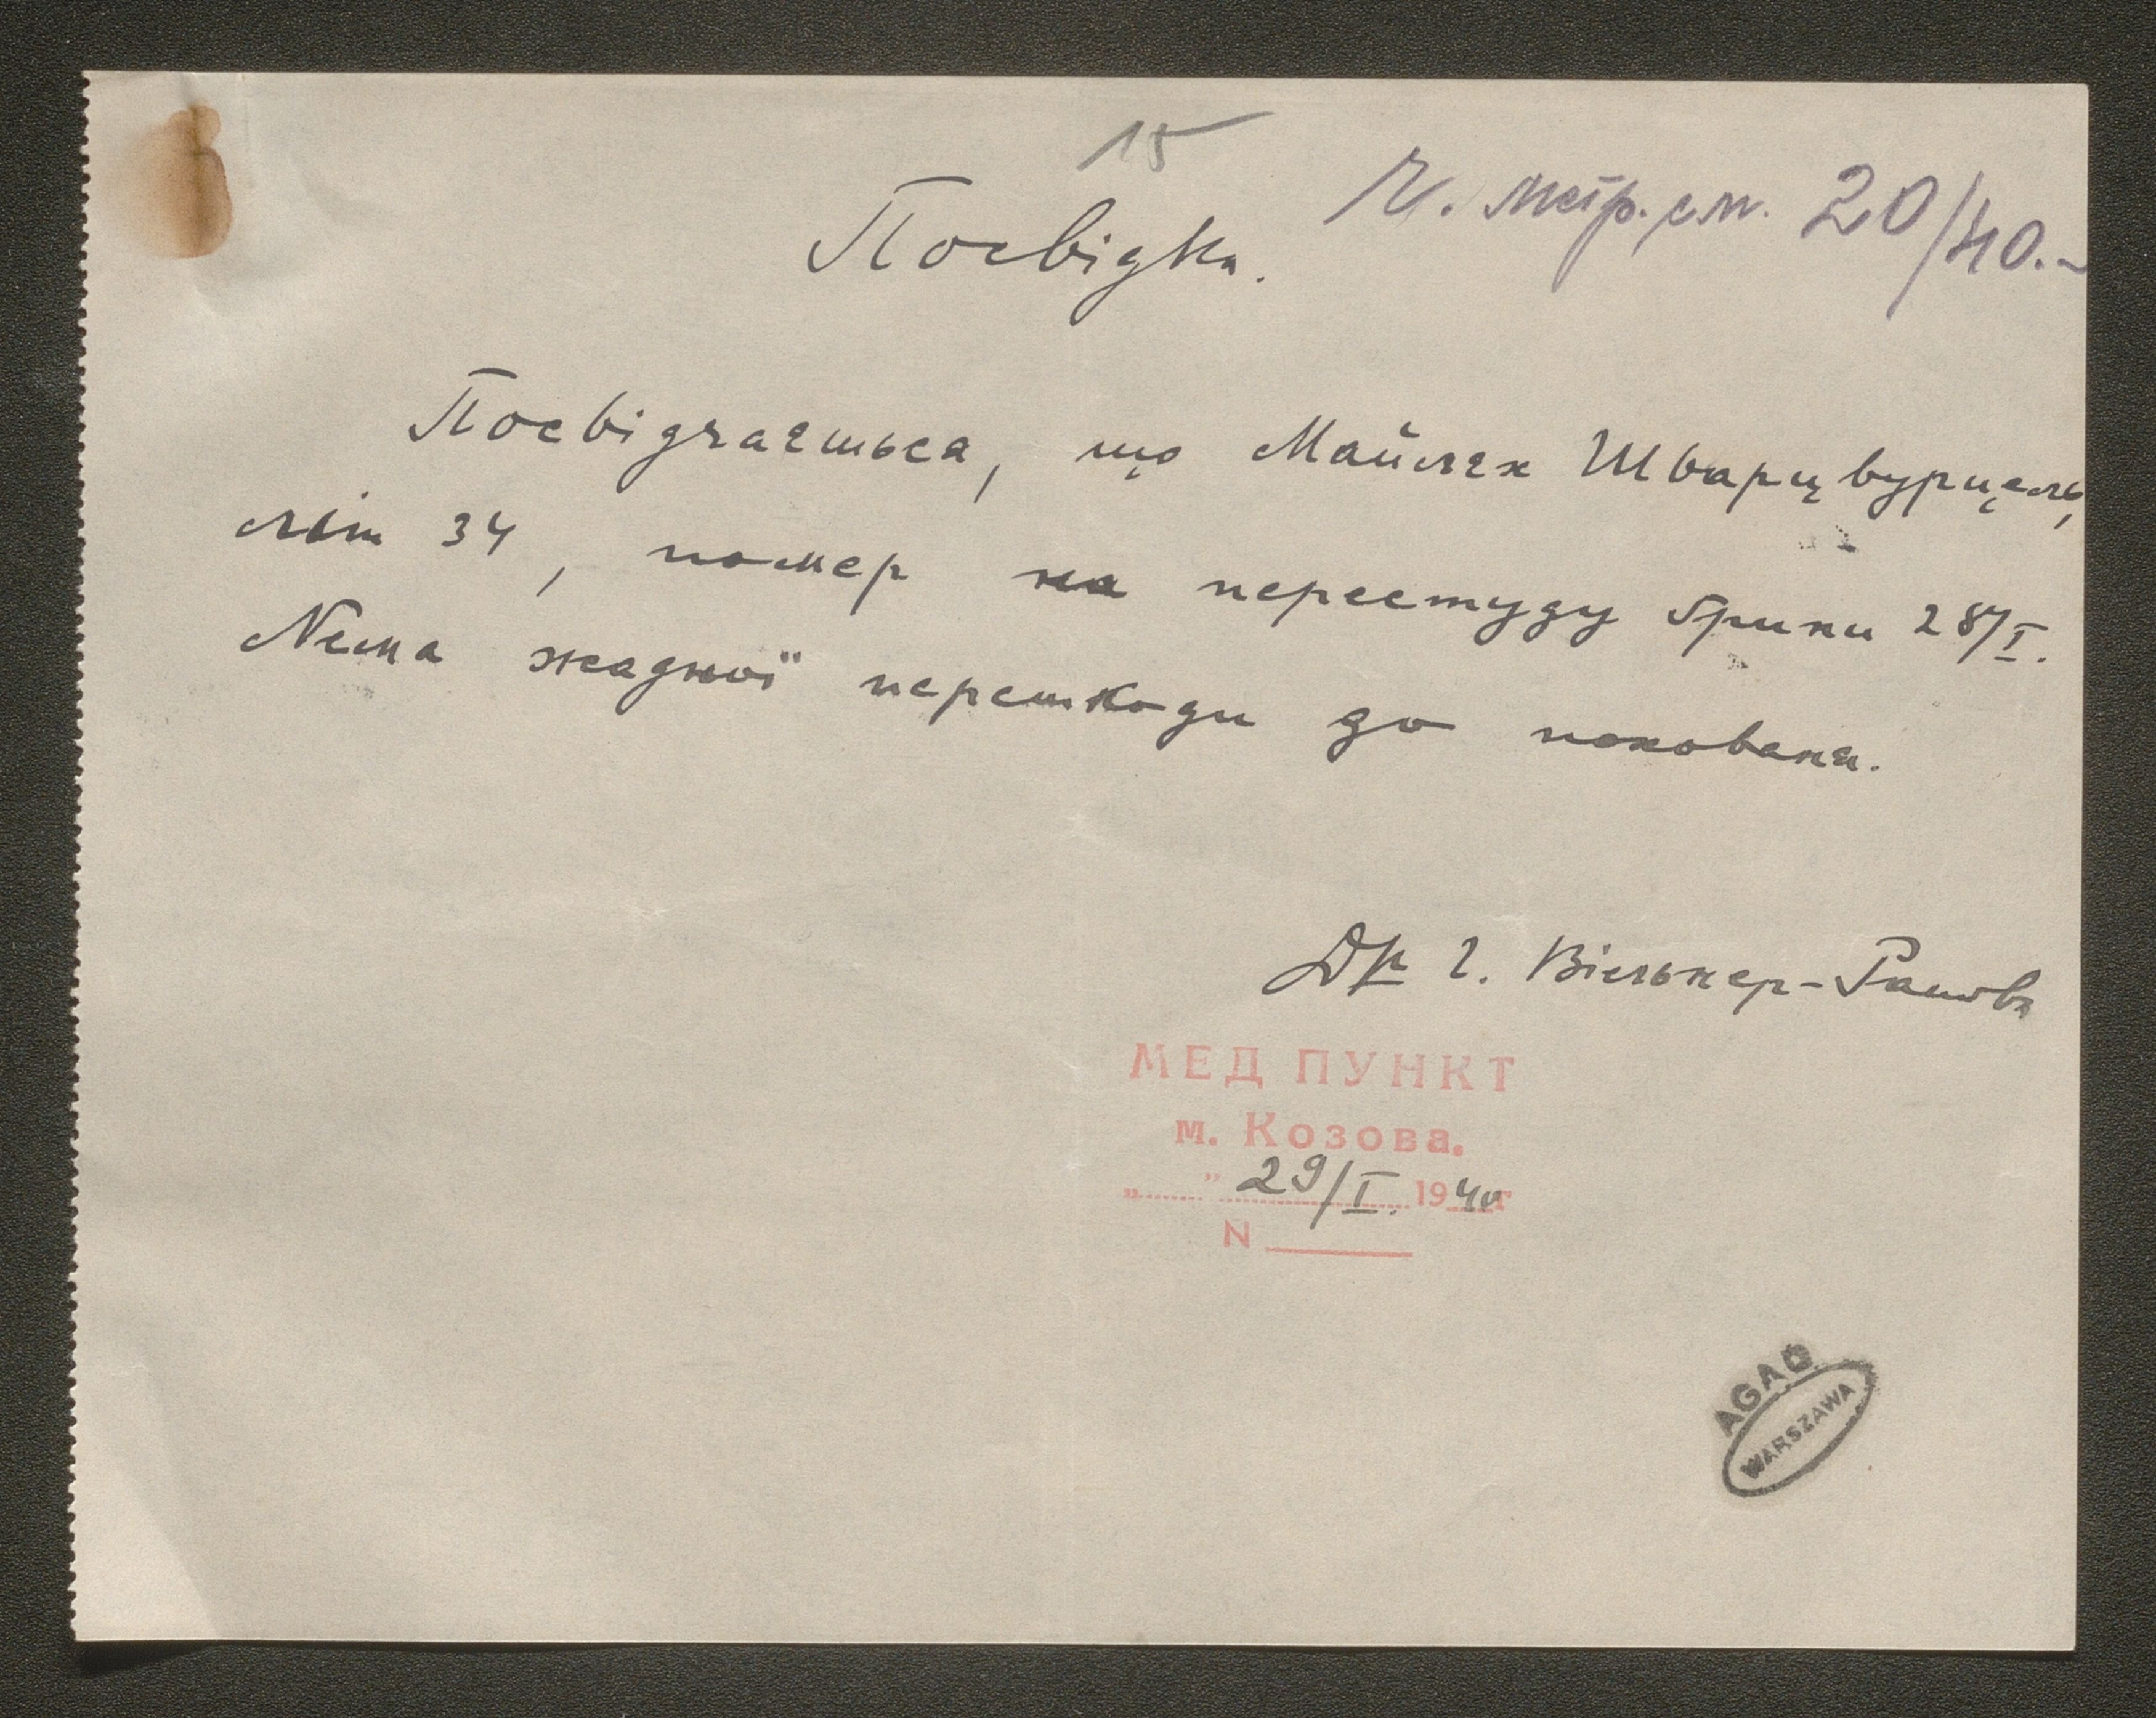 15
Ч. метр. см. 20/40.-
Посвідка.
Посвідчається, що Майлех Шварцвурцель,
літ 34, помер на перестуду грипи 28/I.
Nема жадної перешкоди до похованя.
Др Г. Вільнер-
МЕД ПУНКТ
м. Козова.
„ " 29/I. 1940 г
N
AGAD
WARSZAWA